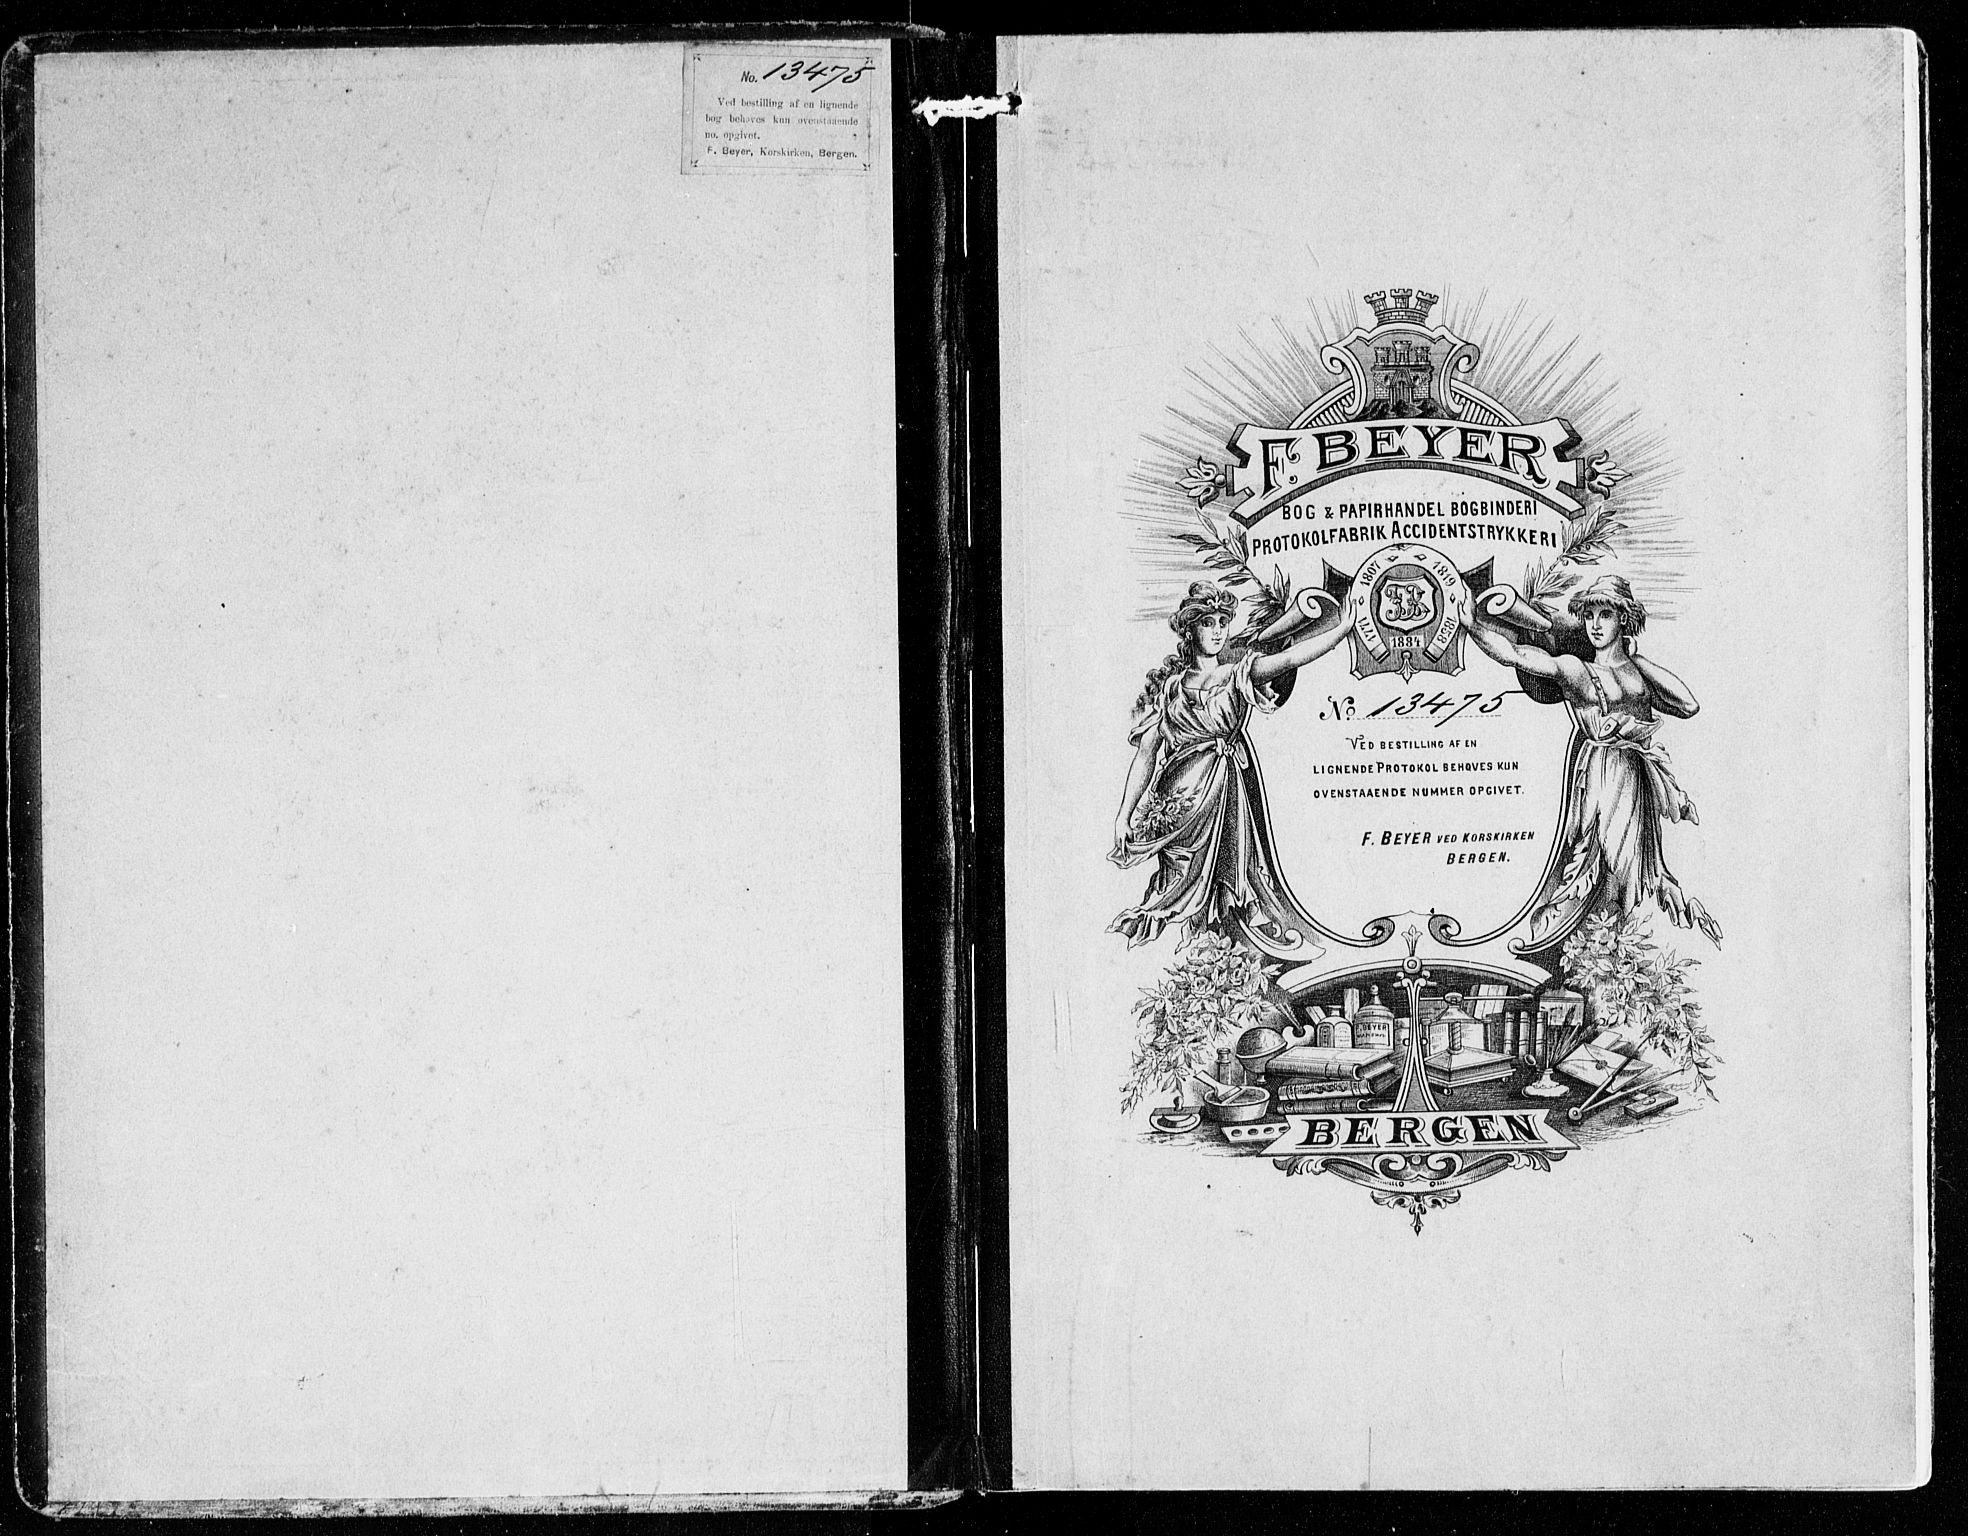 No. 13475
Ved bestilling af en lignende
bog behøves kun ovenstaaende
no. opgivet.
F. Beyer, Korskirken, Bergen.
F. BEYER
BOG & PAPIRHANDEL BOGBINDERI
PROTOKOLFABRIK ACCIDENTSTRYKKERI
1771 1807 1819 1858
1884
No 13475
VED BESTILLING AF EN
LIGNENDE PROTOKOL BEHØVES KUN
OVENSTAAENDE NUMMER OPGIVET.
F. BEYER VED KORSKIRKEN
BERGEN.
F. BEYER
BERGEN